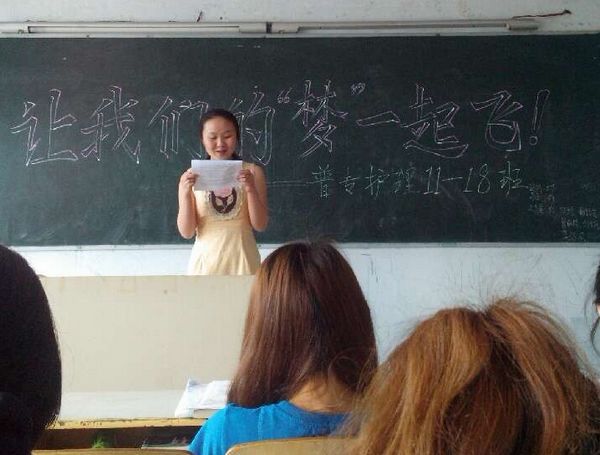 让我们的“梦”一起飞！
——普专护理11-18班